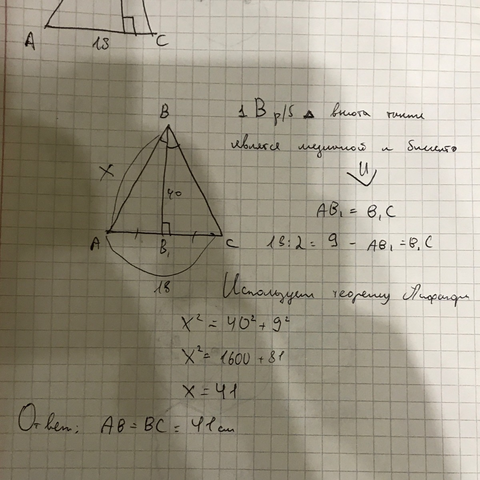 A 18 C
B
X
40
A B₁ C
18
1 В р/б △ высота также
является медианой и биссект
⇓
AB₁ = B₁C
18:2 = 9 - AB₁ = B₁C
Используем теорему Пифагора
x² = 40² + 9²
x² = 1600 + 81
x = 41
Ответ: AB = BC = 41 см